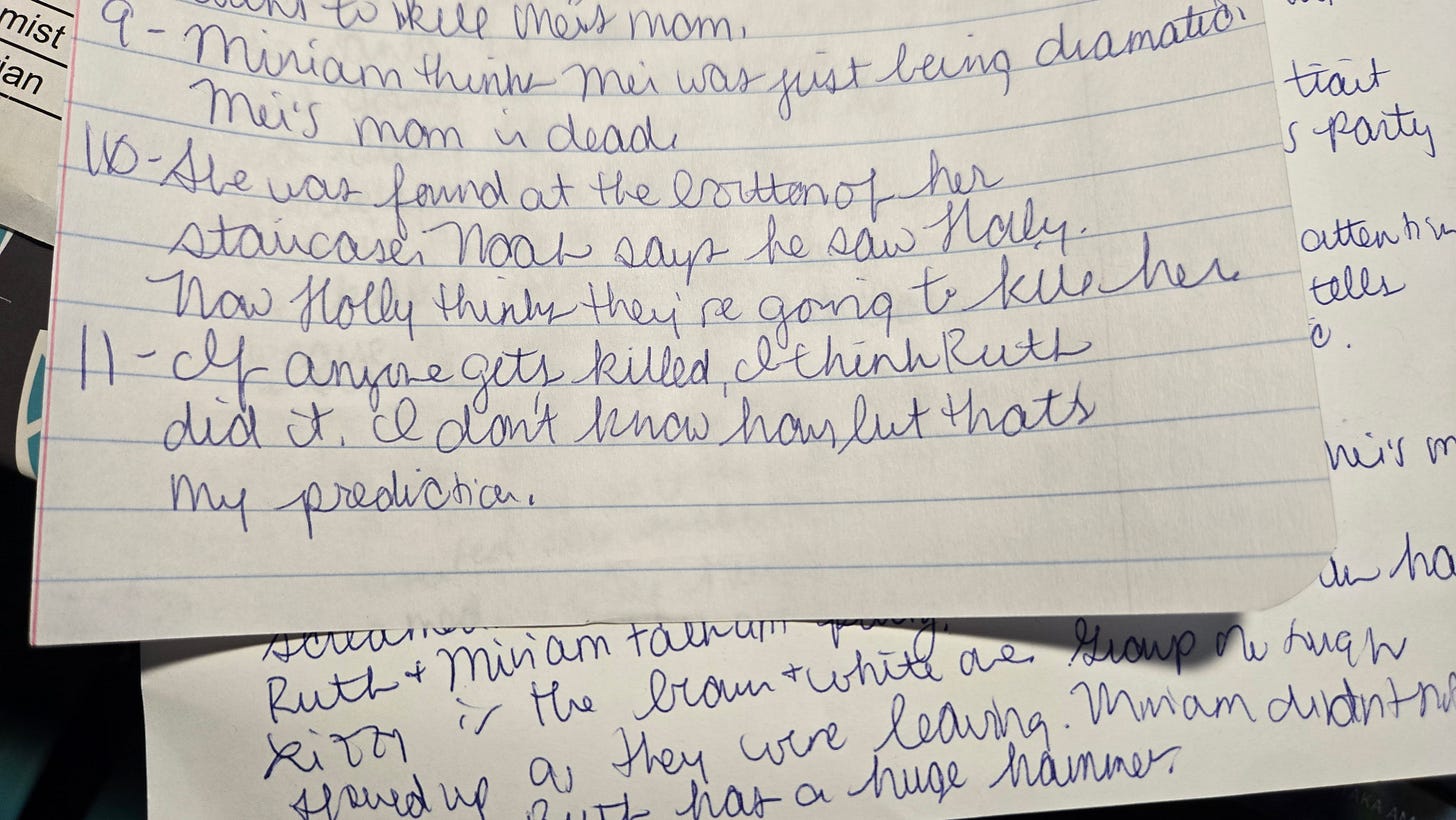 mist
ian
to kill Mei's mom.
9 - Miriam thinks Mei was just being dramatic.
Mei's mom is dead.
10 - She was found at the bottom of her
staircase. Noah says he saw Holly.
Now Holly thinks they're going to kill her
11 - If anyone gets killed, I think Ruth
did it. I don't know how, but thats
my prediction.
trait
s party
attention
tells
c.
Mei's m
ha
screamed
Ruth + Miriam talk
is the brown + white one. Group
showed up as they were leaving. Miriam didn't
Ruth has a huge hammer.
AKA AM